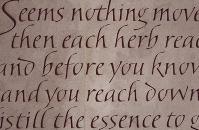 Seems nothing move
then each herb reac
and before you know
and you reach down
istill the essence to g